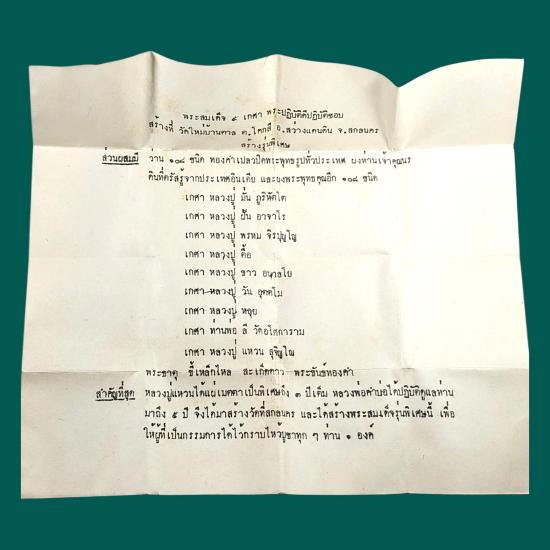 พระสมเด็จ ๕ เกศา พระปฏิบัติดีปฏิบัติชอบ
สร้างที่ วัดใหม่บ้านตาล ต.โคกสี อ.สว่างแดนดิน จ.สกลนคร
สร้างรุ่นพิเศษ
ส่วนผสมมี ว่าน ๑๐๘ ชนิด ทองคำเปลวปิดพระพุทธรูปทั่วประเทศ ผงท่านเจ้าคุณนร
ดินที่ตรัสรู้จากประเทศอินเดีย และผงพระพุทธคุณอีก ๑๐๘ ชนิด
เกศา หลวงปู่ มั่น ภูริทัตโต
เกศา หลวงปู่ ฝั้น อาจาโร
เกศา หลวงปู่ พรหม จิรปุญฺโญ
เกศา หลวงปู่ ตื้อ
เกศา หลวงปู่ ขาว อนาลโย
เกศา หลวงปู่ วัน อุตตโม
เกศา หลวงปู่ หลุย
เกศา ท่านพ่อ ลี วัดอโศการาม
เกศา หลวงปู่ แหวน สุจิญโณ
พระธาตุ ขี้เหล็กไหล สะเก็ดดาว พระขันธ์ทองคำ
สำคัญที่สุด หลวงปู่แหวนได้แผ่เมตตาเป็นพิเศษถึง ๓ ปีเต็ม หลวงพ่อคำบ่อได้ปฏิบัติดูแลท่าน
มาถึง ๕ ปี จึงได้มาสร้างวัดที่สกลนคร และได้สร้างพระสมเด็จรุ่นพิเศษนี้ เพื่อ
ให้ผู้ที่เป็นกรรมการได้ไว้กราบไหว้บูชาทุก ๆ ท่าน ๑ องค์